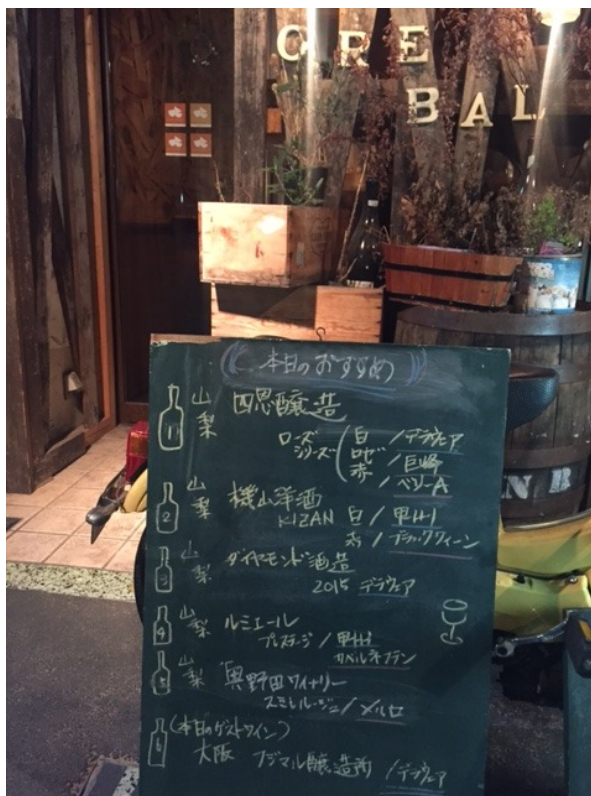 ORE
BAL
本日のおすすめ
1 山梨 四恩醸造
ローズシリーズ 白 / デラウェア
ロゼ / 巨峰
赤 / ベリーA
2 山梨 機山洋酒
KIZAN 白 / 甲州
赤 / ブラッククィーン
3 山梨 ダイヤモンド酒造
2015 デラウェア
4 山梨 ルミエール
プレステージ / 甲州
カベルネフラン
5 山梨 奥野田ワイナリー
スミレルージュ / メルロ
6 (本日のゲストワイン)
大阪 フジマル醸造所 / デラウェア